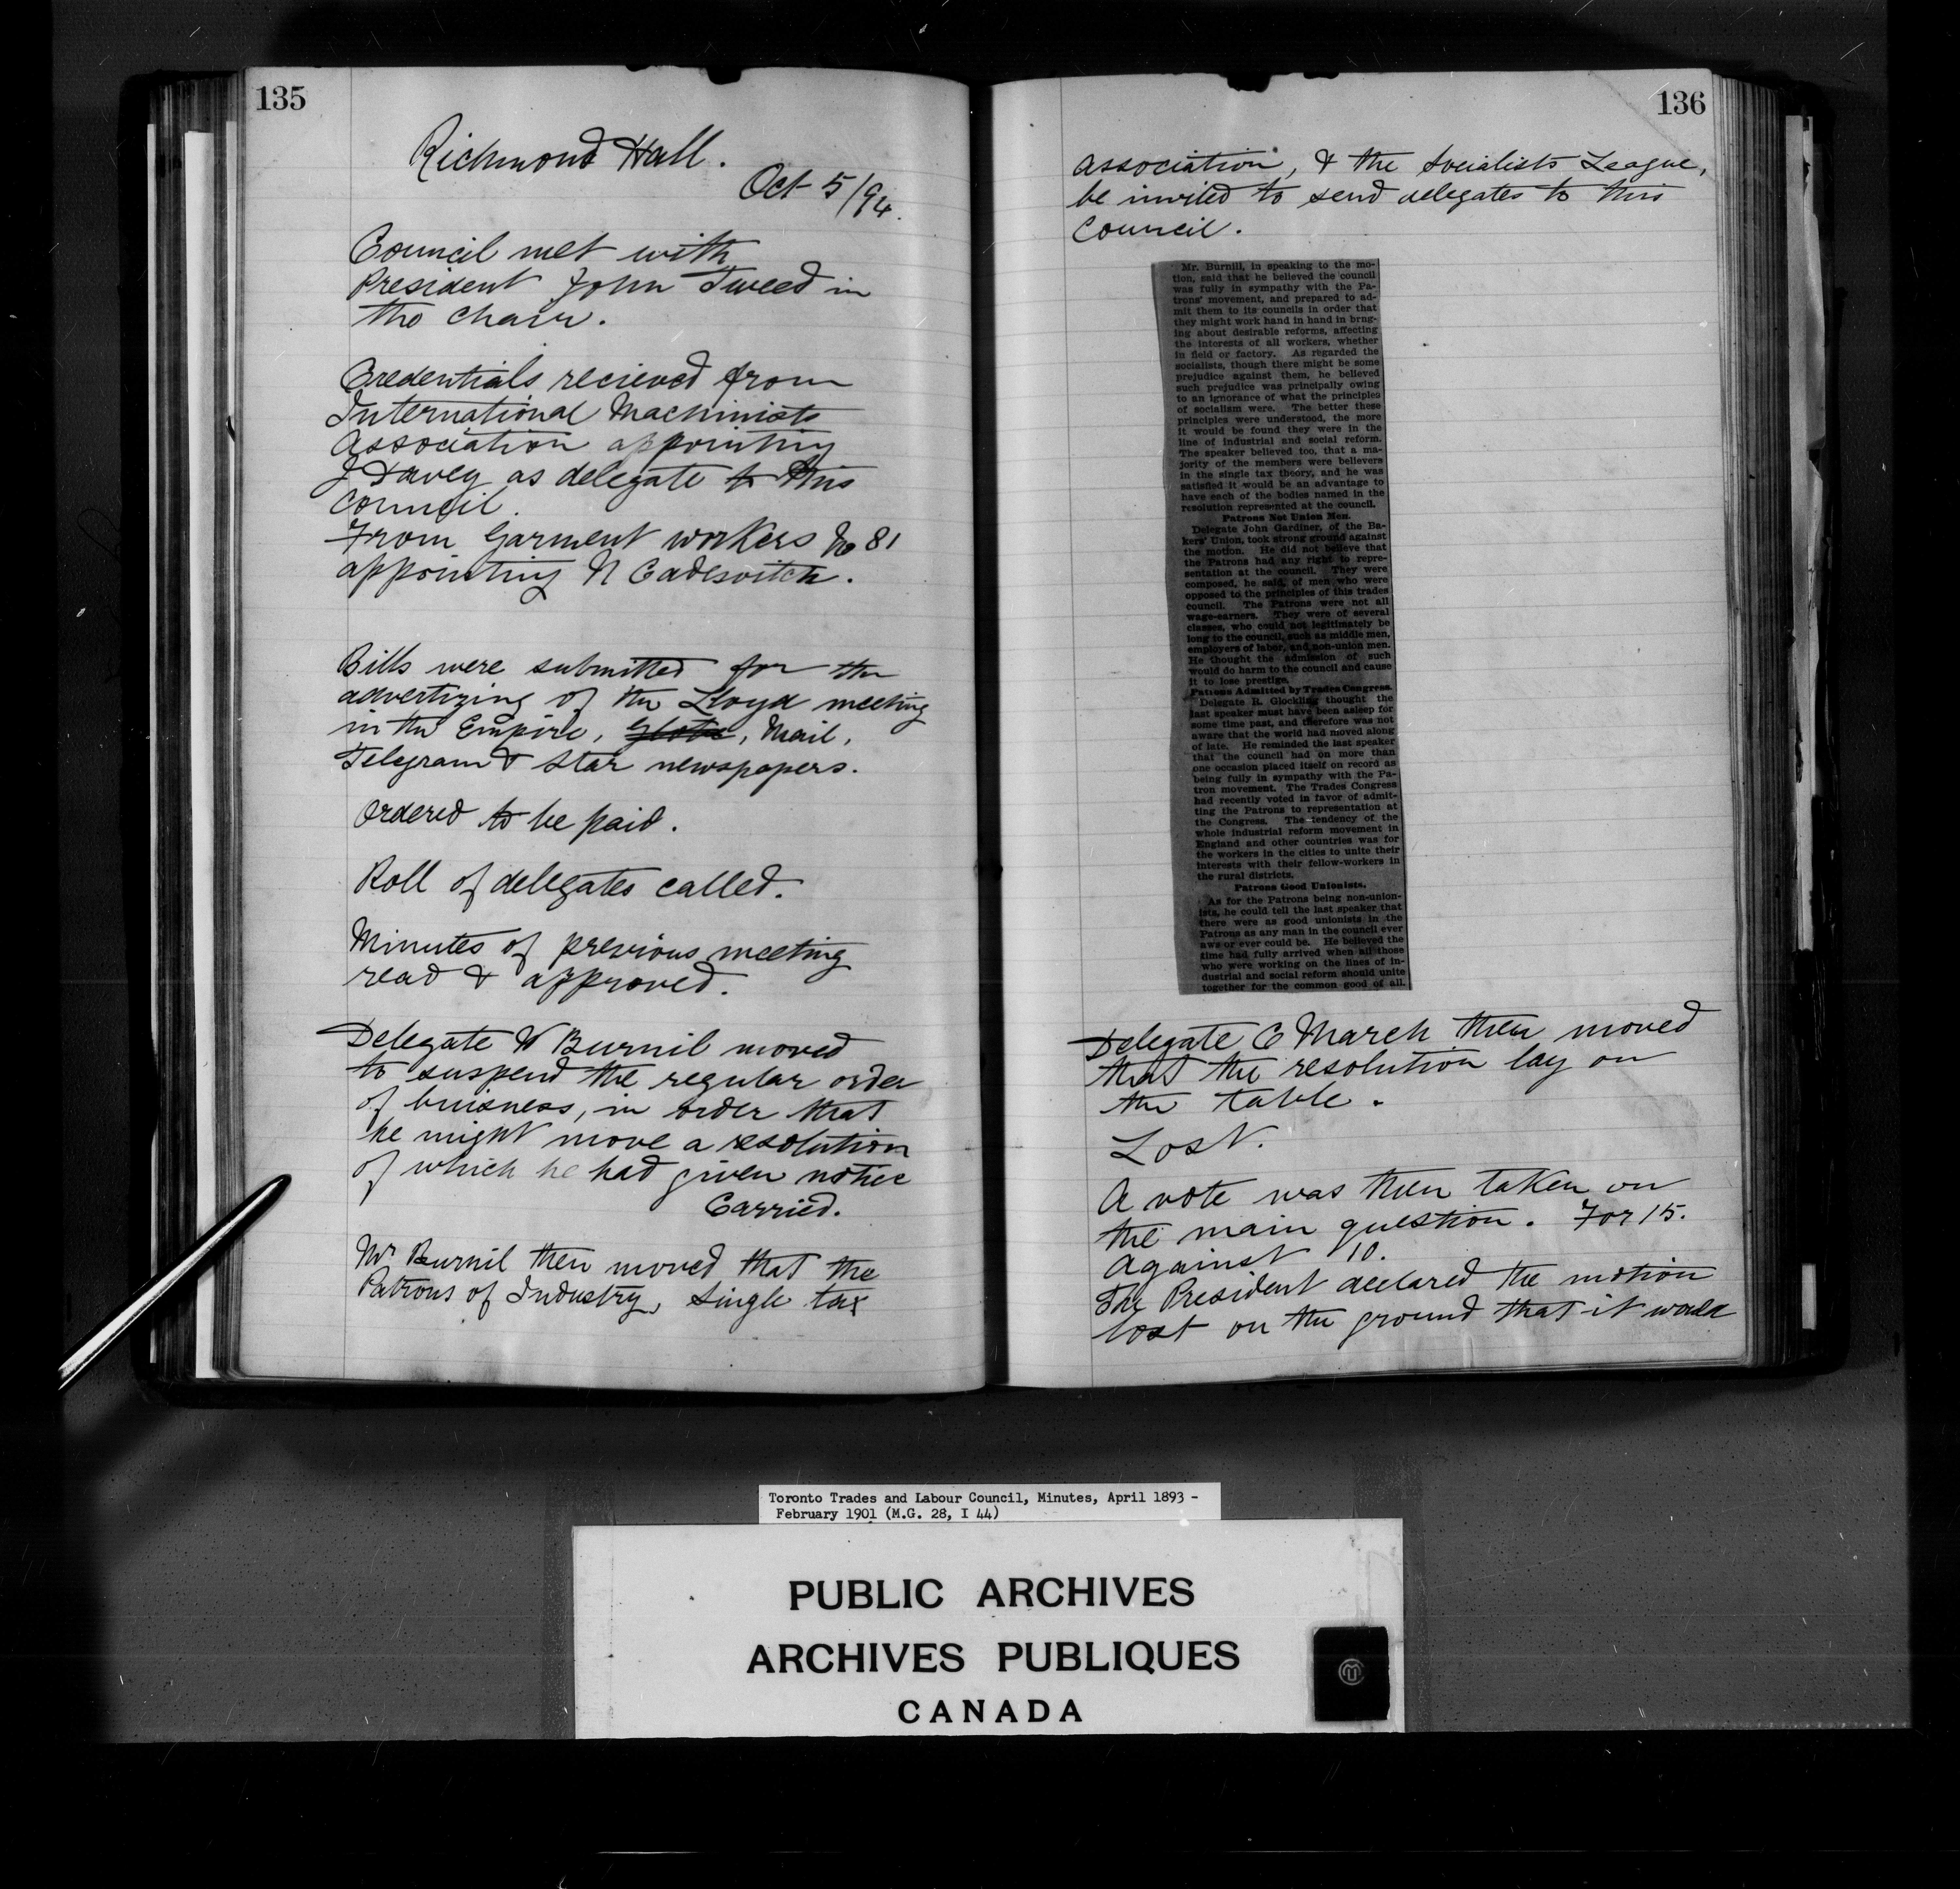 135
Richmond Hall.
Oct 5/94.
Council met with
President John Tweed in
the chair.
Credentials recieved from
International Machinists
Association appointing
J Davey as delegate to this
Council.
From Garment workers No 81
appointing N Cadesvitch.
Bills were submitted for the
advertizing of the Lloyd meeting
in the Empire, Globe, Mail,
Telegram & Star newspapers.
Ordered to be paid.
Roll of delegates called.
Minutes of previous meeting
read & approved.
Delegate W Burnil moved
to suspend the regular order
of buisness, in order that
he might move a resolution
of which he had given notice
Carried.
Mr Burnil then moved that the
Patrons of Industry, Single tax
136
association, & the Socialists League,
be invited to send delegates to this
Council.
Mr. Burnill, in speaking to the mo-
tion, said that he believed the council
was fully in sympathy with the Pa-
trons' movement, and prepared to ad-
mit them to its councils in order that
they might work hand in hand in brng-
ing about desirable reforms, affecting
the interests of all workers, whether
in field or factory. As regarded the
socialists, though there might be some
prejudice against them, he believed
such prejudice was principally owing
to an ignorance of what the principles
of socialism were. The better these
principles were understood, the more
it would be found they were in the
line of industrial and social reform.
The speaker believed too, that a ma-
jority of the members were believers
in the single tax theory, and he was
satisfied it would be an advantage to
have each of the bodies named in the
resolution represented at the council.
Patrons Not Union Men.
Delegate John Gardiner, of the Ba-
kers' Union, took strong ground against
the motion. He did not believe that
the Patrons had any right to repre-
sentation at the council. They were
composed, he said, of men who were
opposed to the principles of this trades
council. The Patrons were not all
wage-earners. They were of several
classes, who could not legitimately be
long to the council, such as middle men,
employers of labor, and non-union men.
He thought the admission of such
would do harm to the council and cause
it to lose prestige.
Patrons Admitted by Trades Congress.
Delegate R. Glockling thought the
last speaker must have been asleep for
some time past, and therefore was not
aware that the world had moved along
of late. He reminded the last speaker
that the council had on more than
one occasion placed itself on record as
being fully in sympathy with the Pa-
tron movement. The Trades Congress
had recently voted in favor of admit-
ting the Patrons to representation at
the Congress. The tendency of the
whole industrial reform movement in
England and other countries was for
the workers in the cities to unite their
interests with their fellow-workers in
the rural districts.
Patrons Good Unionists.
As for the Patrons being non-union-
ists, he could tell the last speaker that
there were as good unionists in the
Patrons as any man in the council ever
aws or ever could be. He believed the
time had fully arrived when all those
who were working on the lines of in-
dustrial and social reform should unite
together for the common good of all.
Delegate C March then moved
that the resolution lay on
the table.
Lost.
A vote was then taken on
the main question. For 15.
Against 10.
The President declared the motion
lost on the ground that it would
Toronto Trades and Labour Council, Minutes, April 1893 -
February 1901 (M.G. 28, I 44)
PUBLIC ARCHIVES
ARCHIVES PUBLIQUES
CANADA